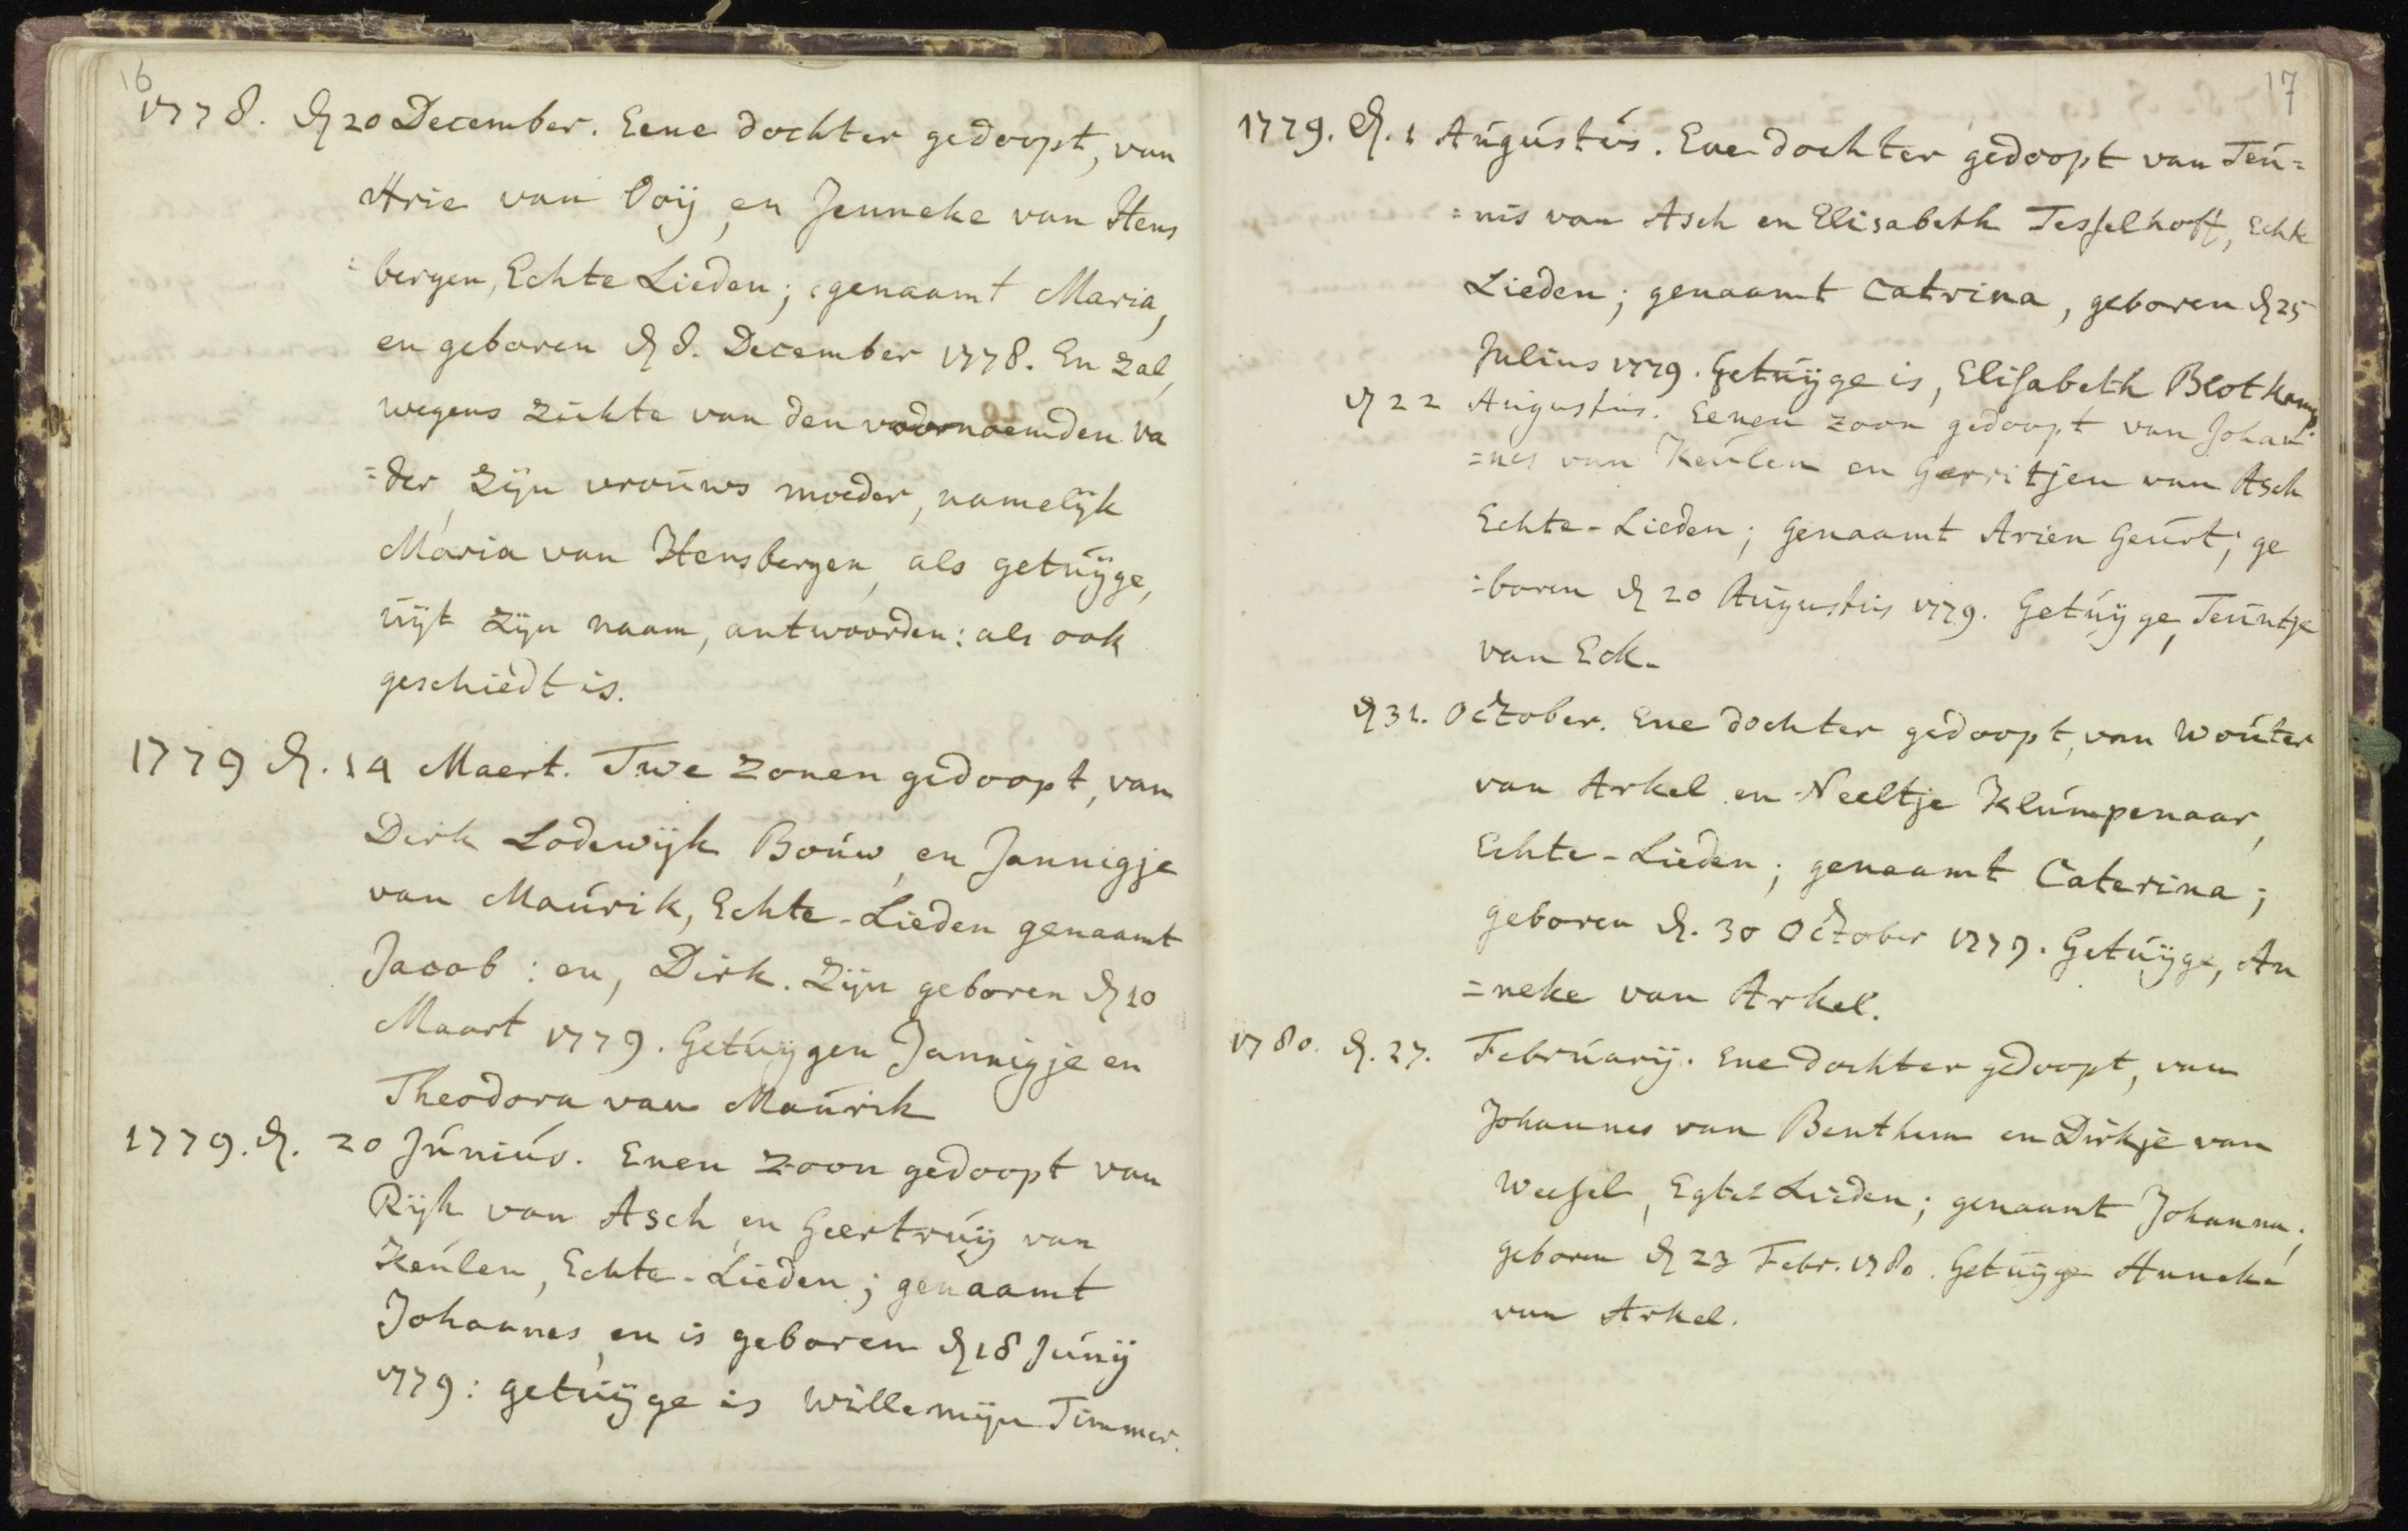 16
1778. dn 20 December. Eene dochter gedoopt, van
Arie van Ooij, en Jenneke van Hens
=bergen, Echte Lieden; genaamt Maria,
en geboren dn 8. December 1778. En zal,
wegens ziekte van den voornoemden va
=der, zijn vrouws moeder, namelijk
Maria van Hensbergen, als getuijge,
uijt zijn naam, antwoorden: als ook
geschiedt is.
1779 dn. 14 Maert. Twe zonen gedoopt, van
Dirk Lodewijk Bouw, en Jannigje
van Maurik, Echte-Lieden genaamt
Jacob: en, Dirk. Zijn geboren dn 10
Maart 1779. Getuygen Jannigje en
Theodora van Maurik
1779. dn. 20 Junius. Enen zoon gedoopt van
Rijk van Asch en Geertruij van
Keulen, Echte-Lieden; genaamt
Johannes, en is geboren dn 18 Junij
1779: getuijge is Willemijn Timmer.
17
1779. dn. 1 Augustus. Ene dochter gedoopt van Teu=
=nis van Asch en Elisabeth Tesselhoff, Echte
Lieden; genaamt Catrina, geboren dn 25
Julius 1779. Getuijge is, Elisabeth Blotkamp
dn 22 Augustus. Eenen zoon gedoopt van Johan
=nes van Keulen en Gerritjen van Asch
Echte-Lieden; genaamt Arien Geurt; ge
=boren dn 20 Augustus 1779. Getuijge, Teuntje
van Eck.
dn 31. October. Ene dochter gedoopt, van Wouter
van Arkel en Neeltje Klumpenaar,
Echte-Lieden; genaamt Caterina;
geboren dn. 30 October 1779. Getuijge, An
=neke van Arkel.
1780. dn. 27. Februarij. Ene dochter gedoopt, van
Johannes van Benthum en Dirkje van
Weesel, Egte Lieden; genaamt Johanna;
geboren dn 23 Febr. 1780. Getuijge Anneke
van Arkel.